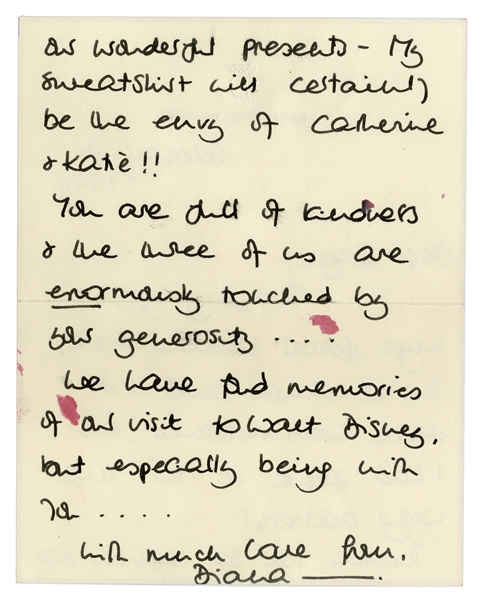 our wonderful presents - My
sweatshirt will certainly
be the envy of Catherine
& Katie!!
You are full of kindness
& the three of us are
enormously touched by
your generosity ....
We have fond memories
of our visit to Walt Disney,
but especially being with
You ....
With much love from,
Diana